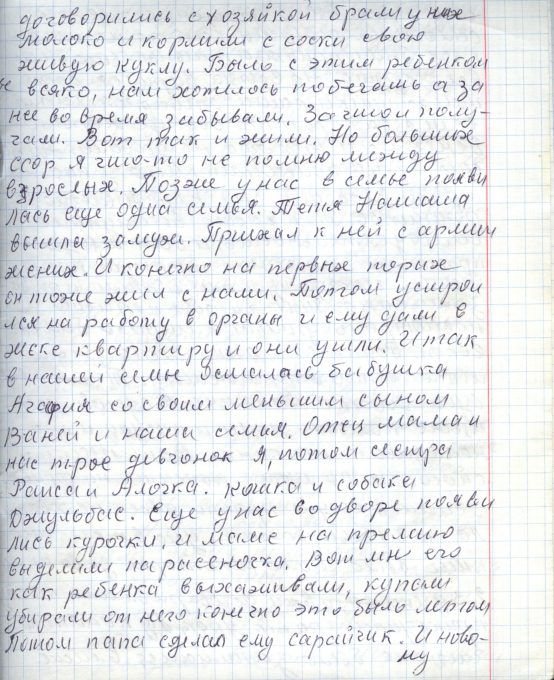 договорились с хозяйкой брали у них
молоко и кормили с соски свою
живую куклу. Было с этим ребенком
всяко, нам хотелось побегать а за
нее во время забывали. За что и полу-
чали. Вот так и жили. Но больших
ссор я что-то не помню между
взрослых. Позже у нас в семье появи
лась еще одна семья. Тетя Наташа
вышла замуж. Приехал к ней с армии
жених. И конечно на первых порах
он тоже жил с нами. Потом устрои
лся на работу в органы и ему дали в
жеке квартиру и они ушли. И так
в нашей семье осталась бабушка
Агафия со своим меньшим сыном
Ваней и наша семья. Отец мама и
нас трое девчонок я, потом сестра
Раиса и Алочка. кошка и собака
Джульбас. Еще у нас во дворе появи
лись курочки, и маме на премию
выделили парасеночка. Вот мы его
как ребенка выхаживали, купали
убирали от него конечно это было летом
Потом папа сделал ему сарайчик. И ново-
му